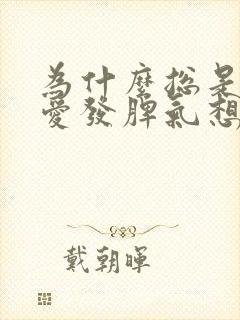 為什麼總是
愛發脾氣想
戴朝暉